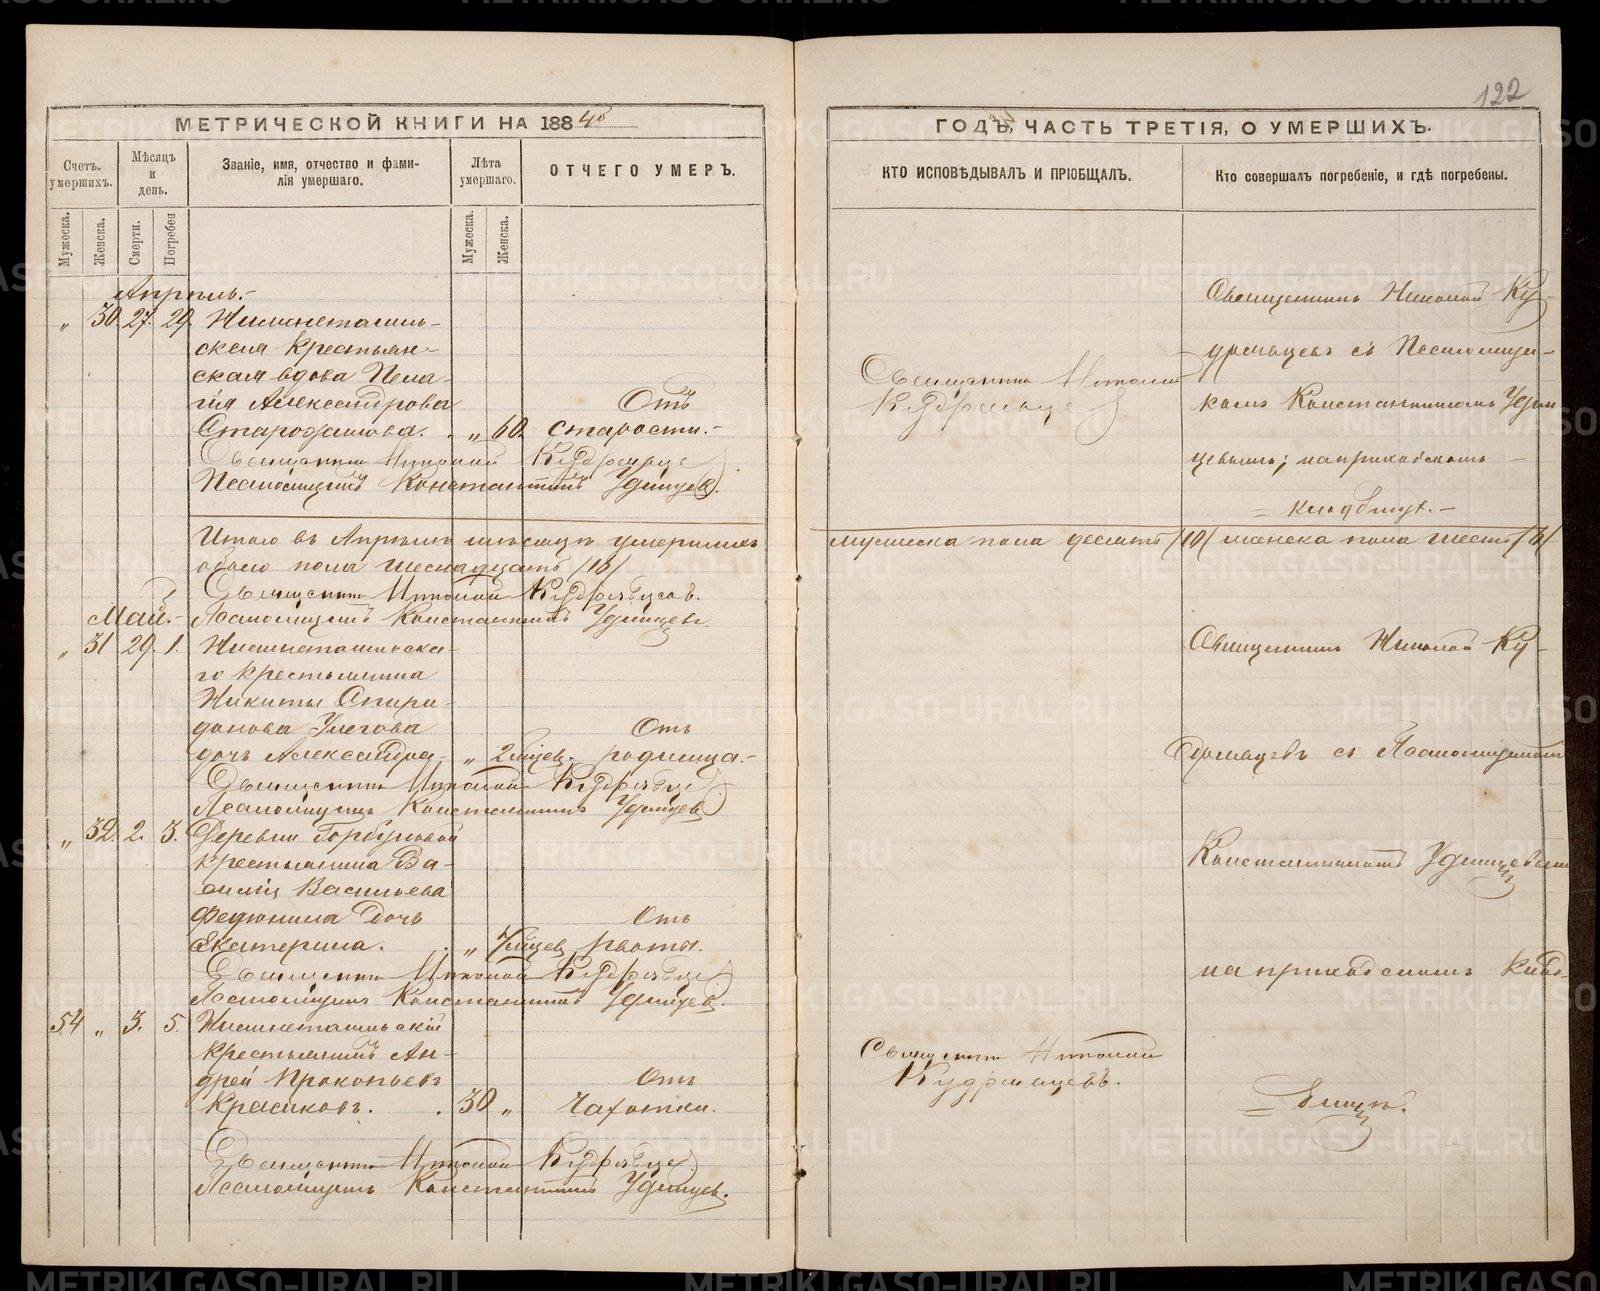 122
МЕТРИЧЕСКОЙ КНИГИ НА 188
Счетъ умершихъ.
Мѣсяцъ и день.
Званіе, имя, отчество и фамилія умершаго.
Лѣта умершаго.
ОТЧЕГО УМЕРЪ.
Мужеска.
Женска.
Смерти.
Погребен
Мужеска.
Женска.
Апрѣль.-
„ 30. 27. 29.
ская Крестьян-
ская вдова Пела-
гія Александрова
Отъ
„ 60. старости.-
Священникъ Николай Кудрявцевъ
Псаломщикъ Константинъ Удинцевъ.
Итого въ Апрѣлѣ мѣсяцѣ умершихъ
обоего пола шестнадцать /16/
Священникъ Николай Кудрявцевъ.
Май.- Псаломщикъ Константинъ Удинцевъ.
„ 31 29. 1.
го крестьянина
Никиты Спири-
донова
Отъ
дочь Александра.- „ 2 мѣсяц. родимца.-
Священникъ Николай Кудрявцевъ
Псаломщикъ Константинъ Удинцевъ
„ 32. 2. 3. Деревни Горбуновой
крестьянина Ва-
силія Васильева
Федюнина дочь
Отъ
Екатерина. „ рвоты.
Священникъ Николай Кудрявцевъ
Псаломщикъ Константинъ Удинцевъ.
54 „ 3. 5.
крестьянинъ Ан-
дрей Прокопьевъ
Отъ
Красиковъ. 30 „ Чахотки.
Священникъ Николай Кудрявцевъ
Псаломщикъ Константинъ Удинцевъ.
ГОДЪ, ЧАСТЬ ТРЕТІЯ, О УМЕРШИХЪ.
КТО ИСПОВѢДЫВАЛЪ И ПРІОБЩАЛЪ.
Кто совершалъ погребеніе, и гдѣ погребены.
Священникъ Николай
Кудрявцевъ.
Священникъ Николай Ку-
дрявцевъ съ Псаломщи-
комъ Константиномъ Удин
цевымъ; на приходскомъ
= кладбищѣ.-
мужеска пола десять /10/ женска пола шесть /6/
Священникъ Николай Ку-
дрявцевъ съ Псаломщикомъ
Константиномъ Удинцевымъ
на приходскомъ клад-
= бищѣ.
Священникъ Николай
Кудрявцевъ.
METRIKI.GASO-URAL.RU